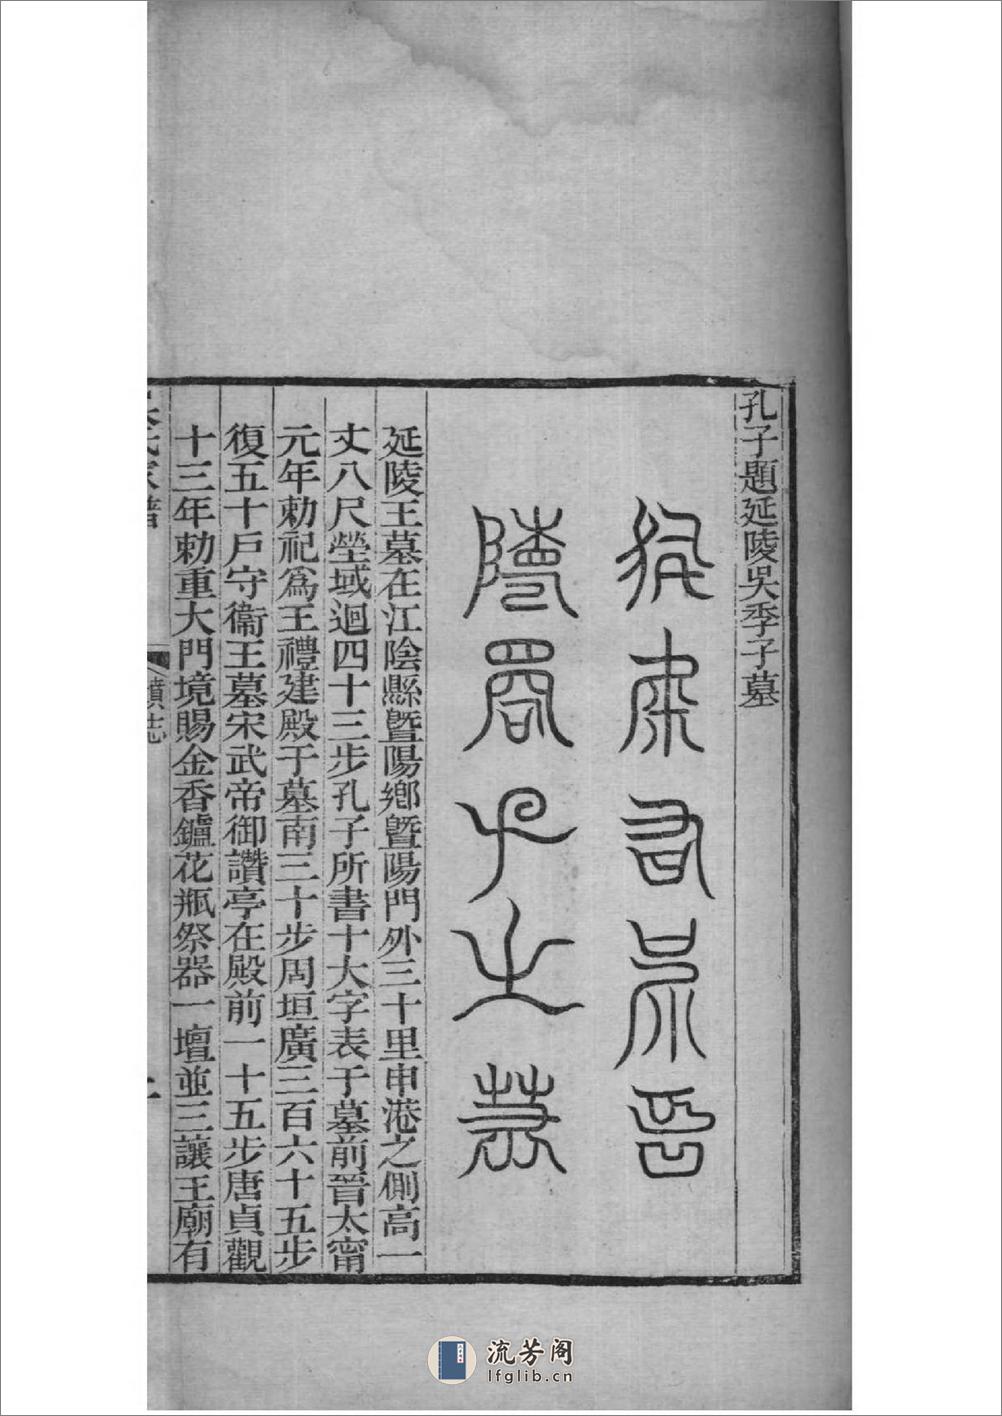 孔子題延陵吳季子墓
嗚呼有吳延
陵君子之墓
延陵王墓在江陰縣曁陽鄉曁陽門外三十里申港之側高一
丈八尺塋域迴四十三步孔子所書十大字表于墓前晉太甯
元年勅祀爲王禮建殿于墓南三十步周垣廣三百六十五步
復五十戶守衞王墓宋武帝御讚亭在殿前一十五步唐貞觀
十三年勅重大門境賜金香鑪花瓶祭器一壇並三讓王廟有
吳氏家譜
墳志
流芳阁
lfglib.cn